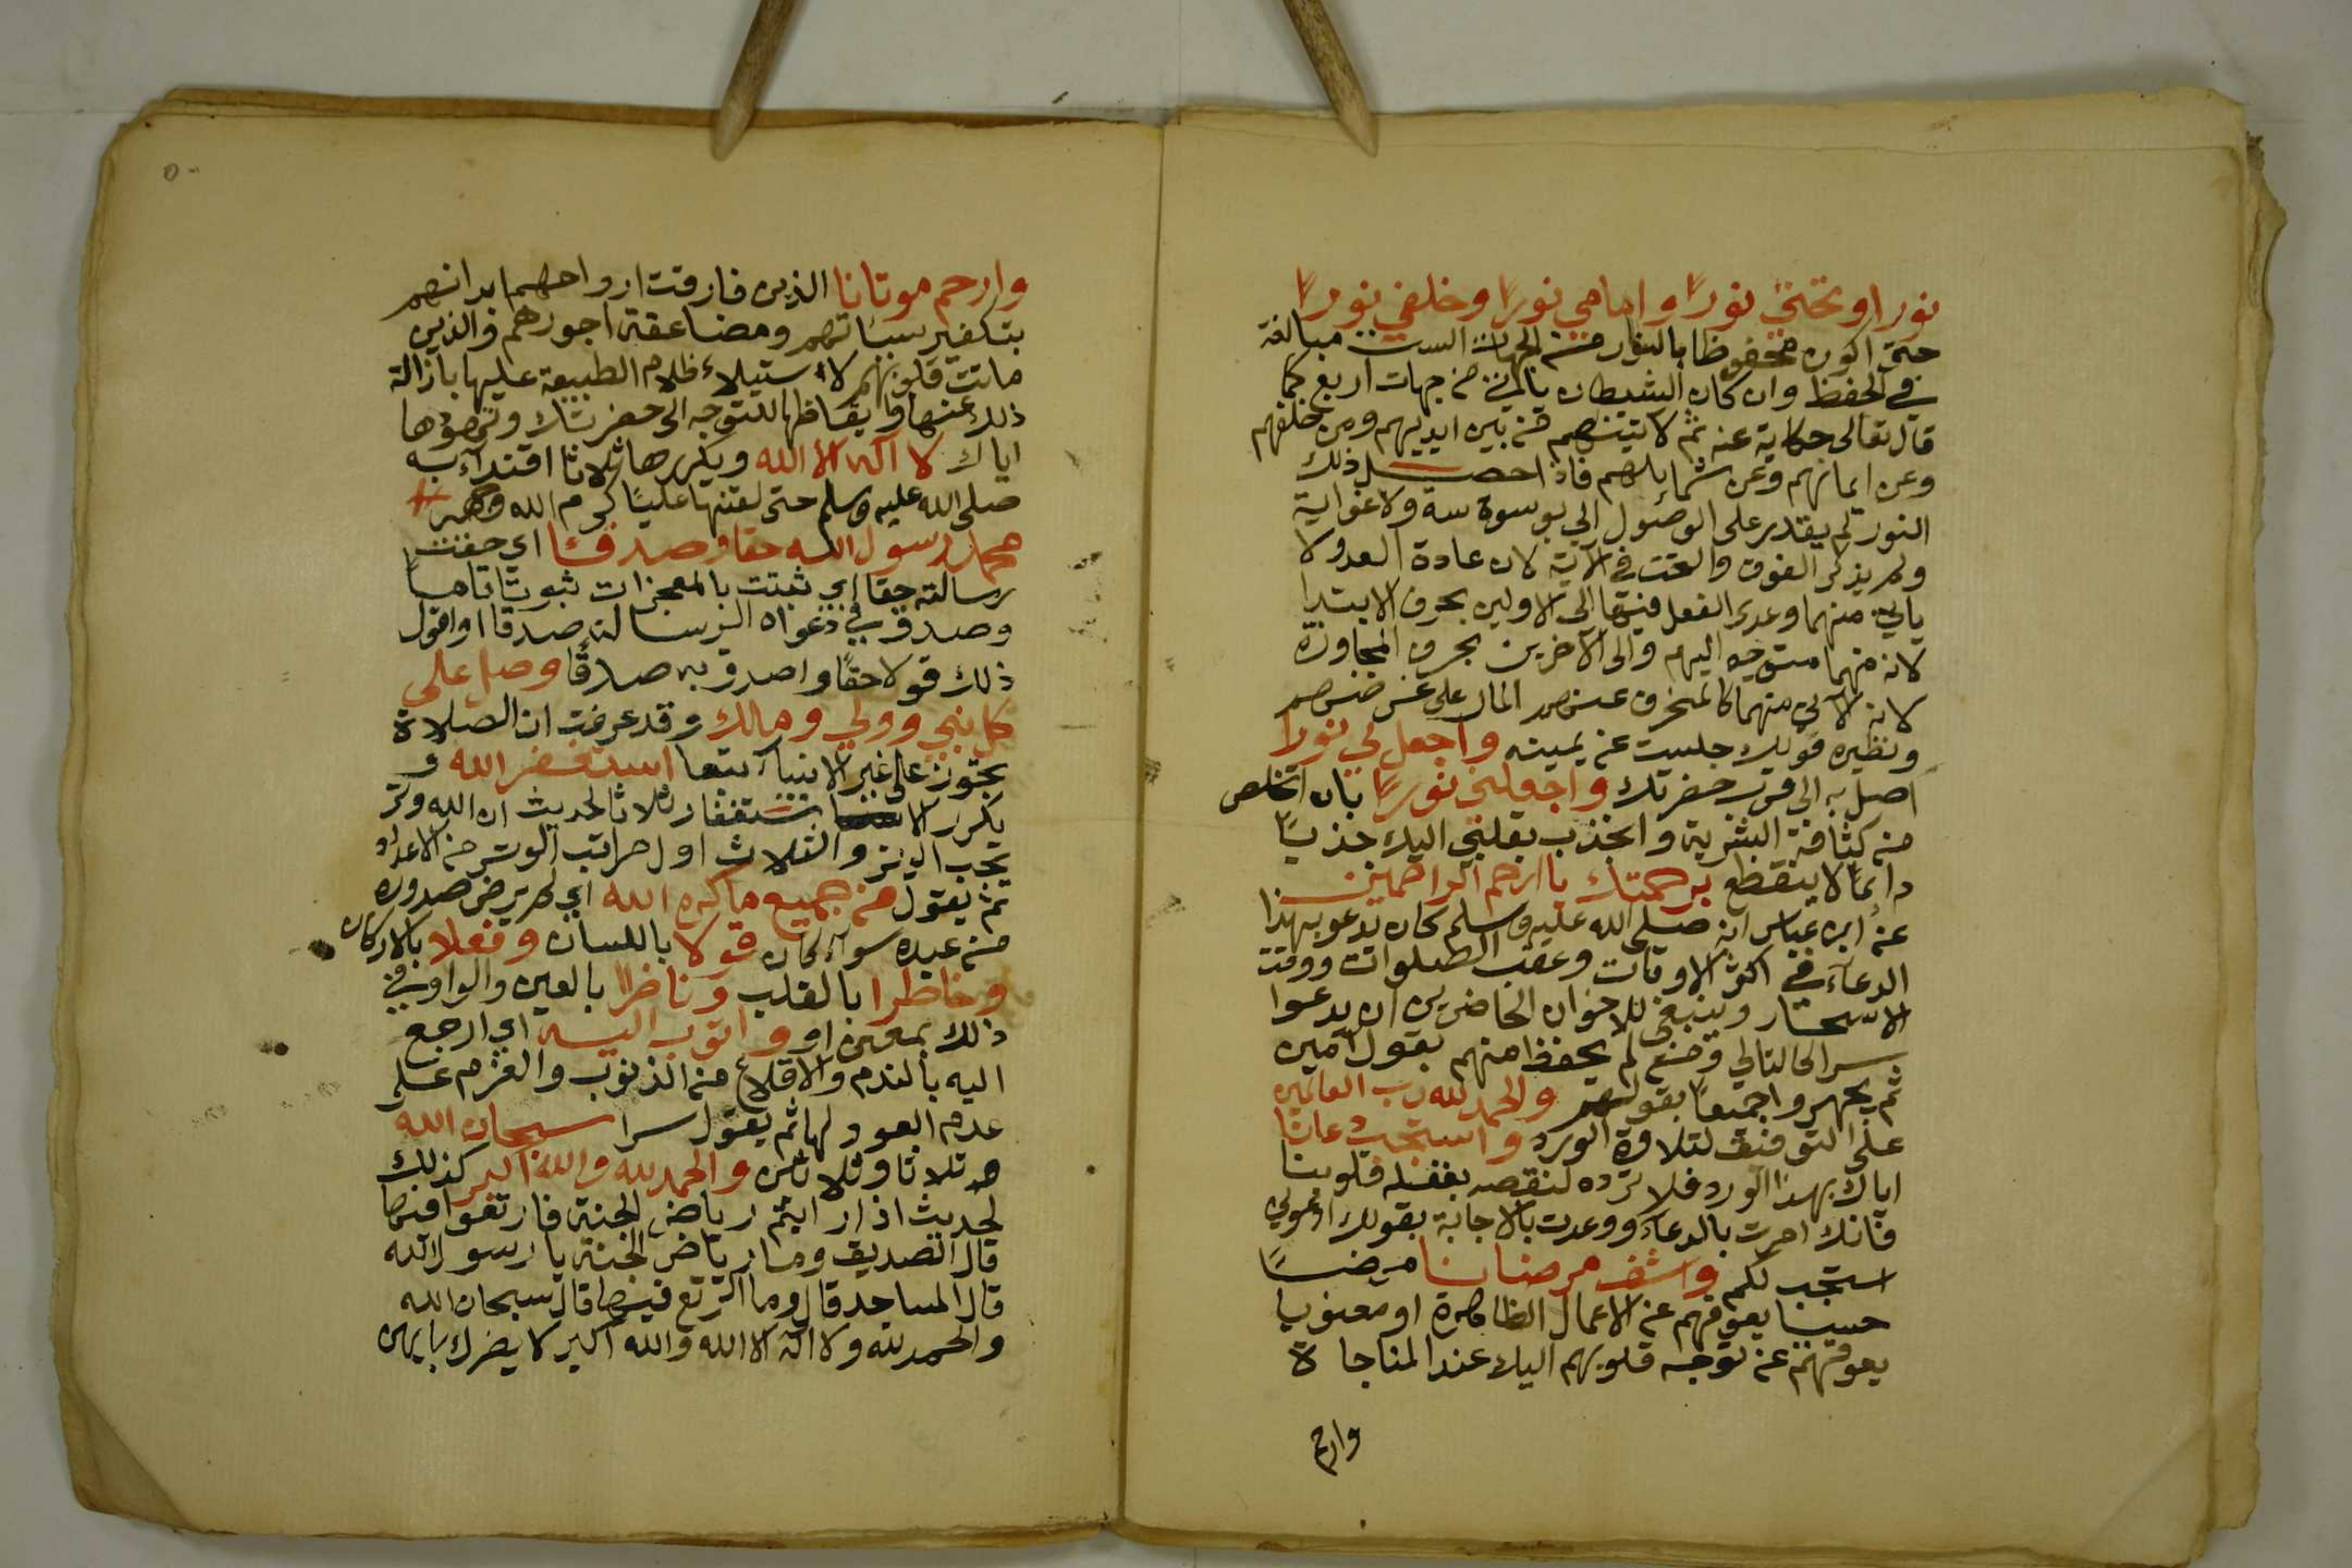 نورا وتحتي نورًا وامامي نورًا وخلفي نورًا
حتى اكون محفوظا بالنور من الجهات الست مبالغة
في الحفظ وان كان الشيطان ياتي من جهات اربع كما
قال تعالى حكاية عنه ثم لاتينهم من بين ايديهم ومن خلفهم
وعن ايمانهم وعن شمائلهم فاذا حصل ذلك
النور لم يقدر على الوصول الي بوسوسة ولا غواية
ولم يذكر الفوق والتحت في الاية لان عادة العدو لا
ياتي منهما وعدى الفعل فيها الى الاولين بحرف الابتدا
لانه منهما متوجه اليهم والى الاخرين بحرف المجاوزة
لان الاتي منهما كالمنحرف عنهم المار على عرضهم
ونظيره قولك جلست عن يمينه واجعل لي نورا
اصل به الى قرب حضرتك واجعلني نورًا بان اتخلص
من كثافة البشرية وانجذب بقلبي اليك جذبًا
دائمًا لا ينقطع برحمتك يا ارحم الراحمين
عن ابن عباس انه صلى الله عليه وسلم كان يدعو بهذا
الدعاء في اكثر الاوقات وعقب الصلوات ووقت
الاسحار وينبغي للاخوان الحاضرين ان يدعوا
سرا كالتالي ومن لم يحفظ منهم يقول امين
ثم يجهروا جميعًا بقولهم والحمد لله رب العالمين
على التوفيق لتلاوة الورد واستجب دعانا
اياك بهذا الورد فلا ترده لنقصه بغفلة قلوبنا
فانك امرت بالدعاء ووعدت بالاجابة بقولك ادعوني
استجب لكم واشف مرضانا مرضًا
حسيا يعوقهم عن الاعمال الظاهرة او معنويا
يعوقهم عن توجه قلوبهم اليك عند المناجاة
وارحم
٥٠
وارحم موتانا الذين فارقت ارواحهم ابدانهم
بتكفير سيئاتهم ومضاعفة اجورهم والذين
ماتت قلوبهم لاستيلاء ظلام الطبيعة عليها بازالة
ذلك عنها وايقاظها للتوجه الى حضرتك
اياك لا اله الا الله ويكررها ثلاثا اقتداء به
صلى الله عليه وسلم حتى لقنها عليًا كرم الله وجهه
محمد رسول الله حقا وصدقا اي حقت
رسالته حقا اي ثبتت بالمعجزات ثبوتا تامًا
وصدق في دعواه الرسالة صدقا او اقول
ذلك قولا حقًا واصدق به صدقًا وصل على
كل نبي وولي ومالك وقد عرفت ان الصلاة
تجوز على غير الانبياء تبعا استغفر الله و
يكرر الاستغفار ثلاثا لحديث ان الله وتر
يحب الوتر والثلاث اول مراتب الوتر من الاعداد
ثم يقول من جميع ما كره الله اي لم يرض صدوره
من عبده سواء كان قولا باللسان وفعلا بالاركان
وخاطرا بالقلب وناظرا بالعين والواو في
ذلك بمعنى او واتوب اليه اي ارجع
اليه بالندم والاقلاع من الذنوب والعزم على
عدم العود لها ثم يقول سرا سبحان الله
ثلاثا وثلاثين والحمد لله والله اكبر كذلك
لحديث اذا رايتم رياض الجنة فارتعوا فيها
قال الصديق وما رياض الجنة يا رسول الله
قال المساجد قال وما الرتع فيها قال سبحان الله
والحمد لله ولا اله الا الله والله اكبر لا يضرك بايهن